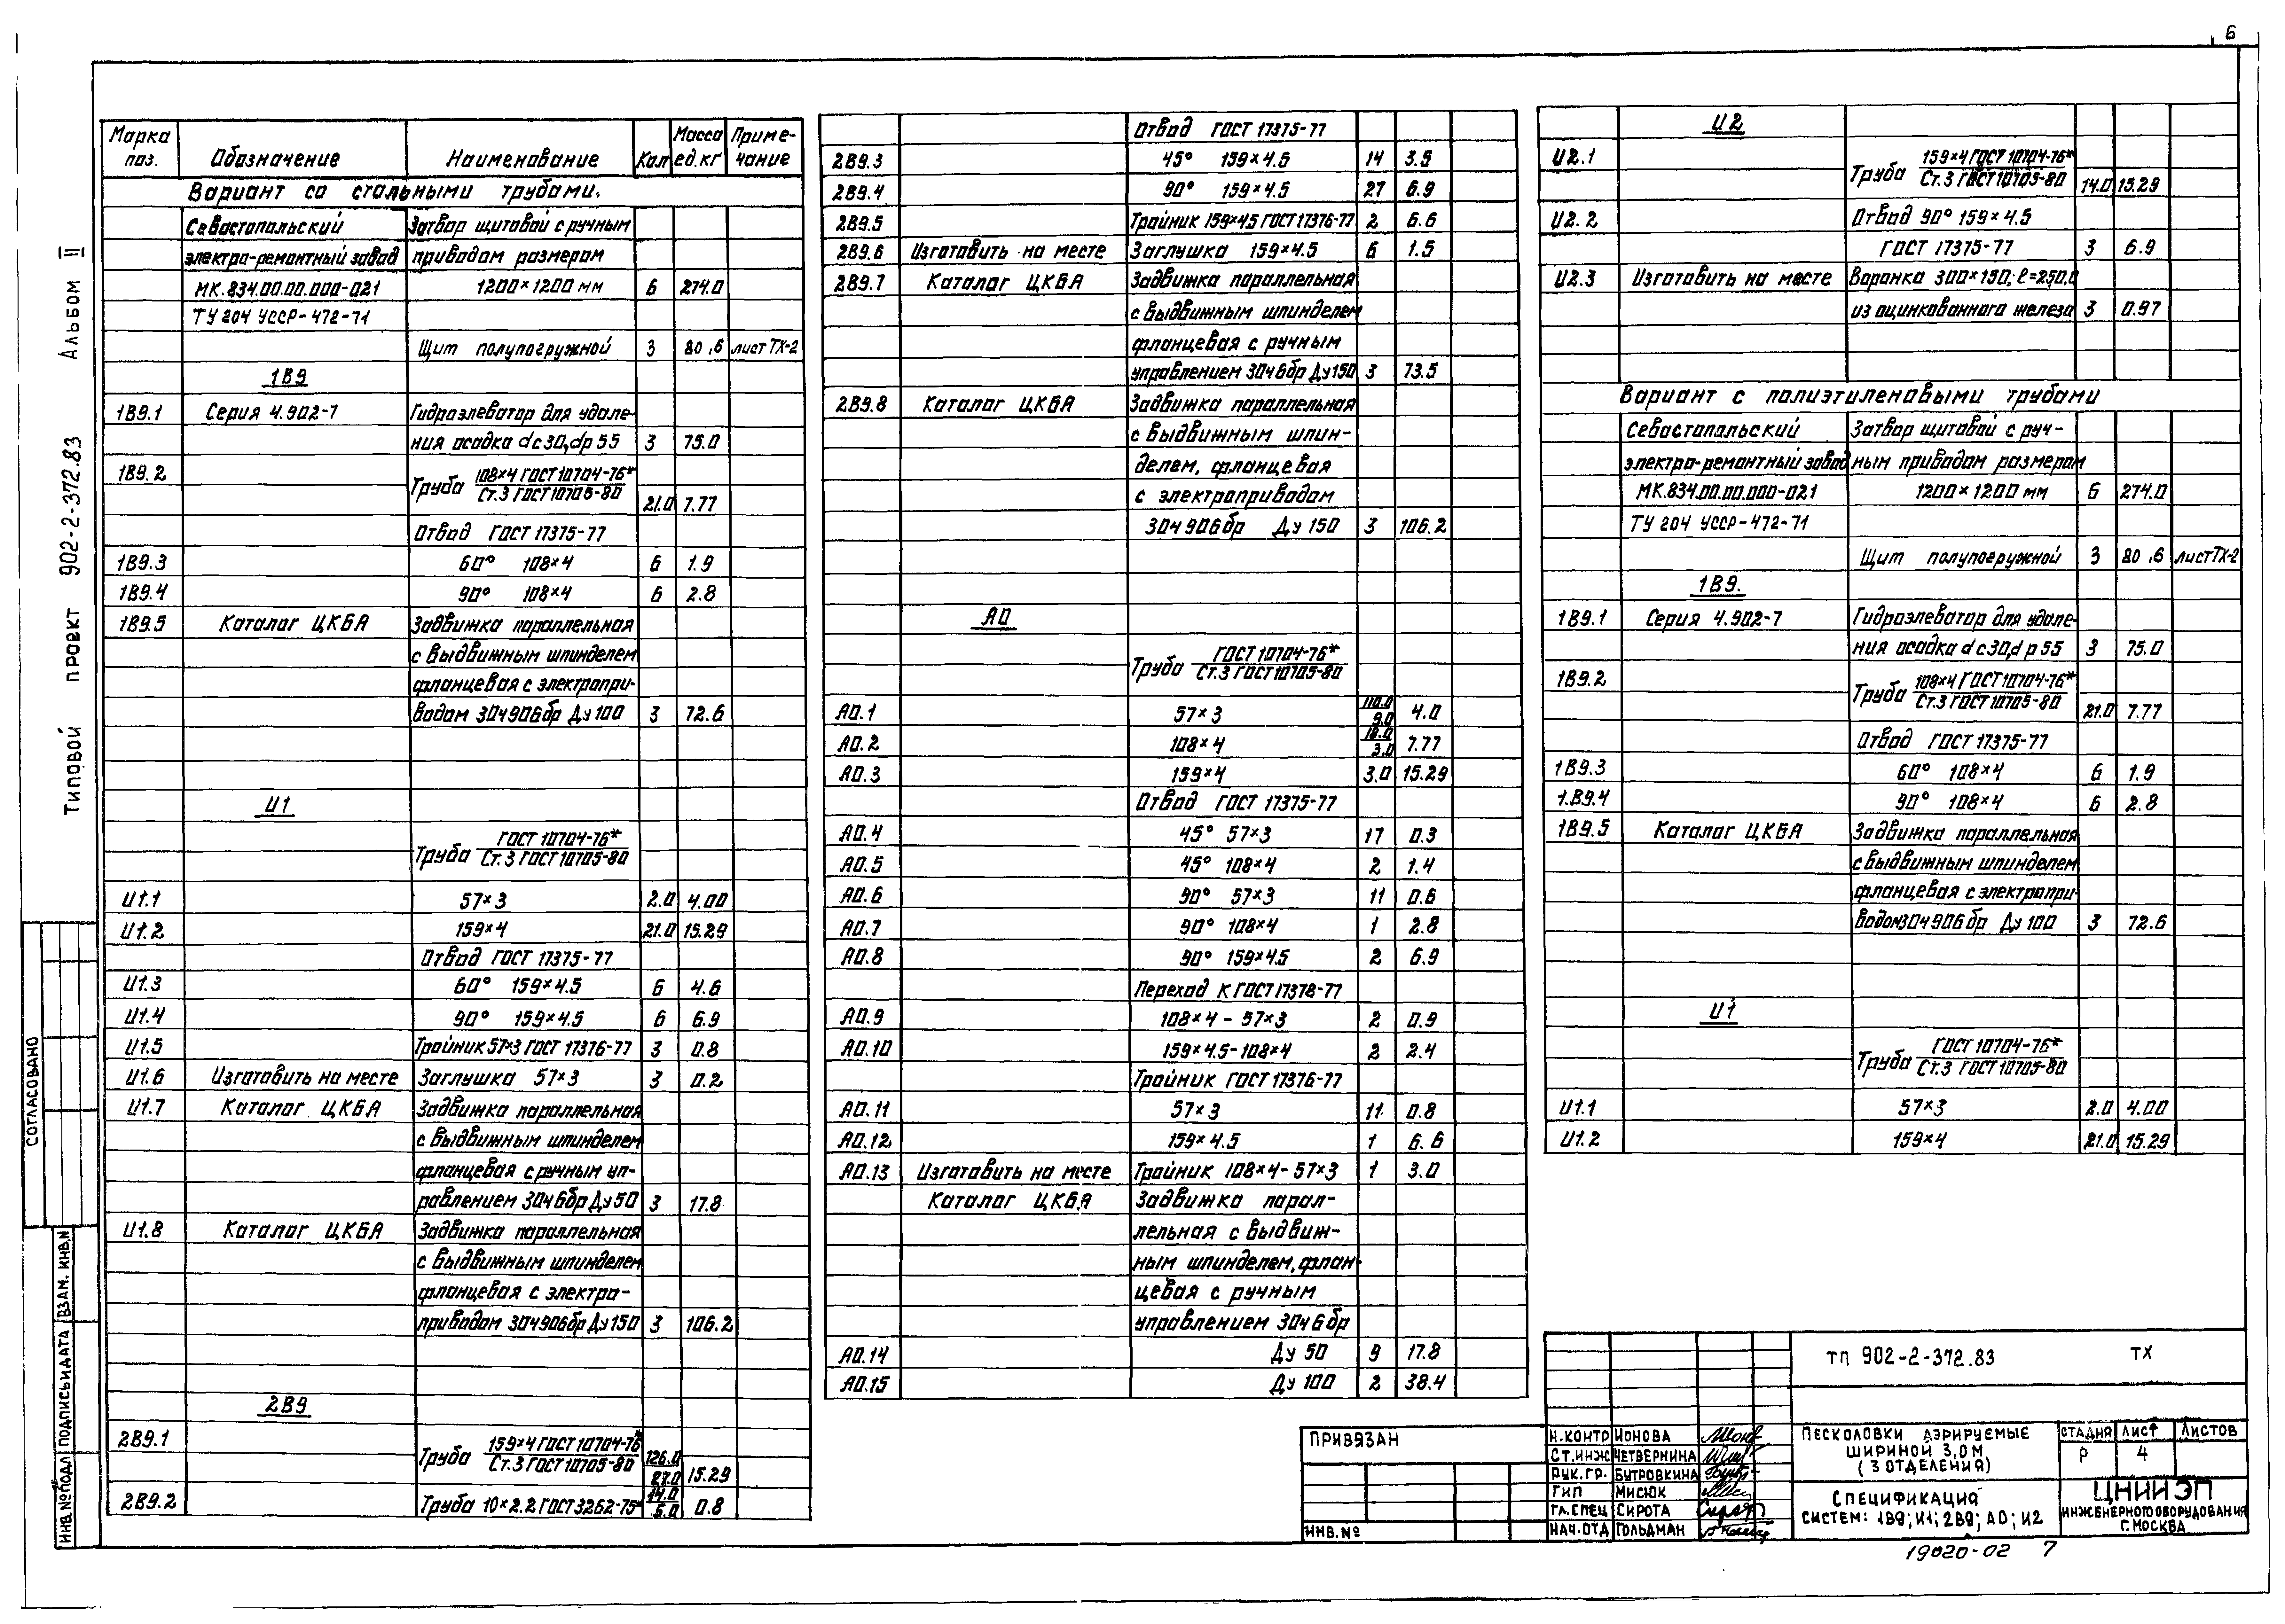 6
Типовой проект 902-2-372.83 Альбом III
Марка поз. Обозначение Наименование Кол Масса ед.кг Примечание
Вариант со стальными трубами.
Севастопольский Затвор щитовой с ручным
электро-ремонтный завод приводом размером
МК.834.00.00.000-021 1200×1200 мм 6 274.0
ТУ 204 УССР-472-71
Щит полупогружной 3 80,6 лист ТХ-2
1В9
1В9.1 Серия 4.902-7 Гидроэлеватор для удале-
ния осадка dс30,dр55 3 75.0
1В9.2 Труба 108×4 ГОСТ 10704-76*
Ст.3 ГОСТ 10705-80 21.0 7.77
Отвод ГОСТ 17375-77
1В9.3 60° 108×4 6 1.9
1В9.4 90° 108×4 6 2.8
1В9.5 Каталог ЦКБА Задвижка параллельная
с выдвижным шпинделем
фланцевая с электропри-
водом 30ч906бр Ду100 3 72.6
И1
Труба ГОСТ 10704-76*
Ст.3 ГОСТ 10705-80
И1.1 57×3 2.0 4.00
И1.2 159×4 21.0 15.29
Отвод ГОСТ 17375-77
И1.3 60° 159×4.5 6 4.6
И1.4 90° 159×4.5 6 6.9
И1.5 Тройник 57×3 ГОСТ 17376-77 3 0.8
И1.6 Изготовить на месте Заглушка 57×3 3 0.2
И1.7 Каталог ЦКБА Задвижка параллельная
с выдвижным шпинделем
фланцевая с ручным уп-
равлением 30ч6бр Ду50 3 17.8
И1.8 Каталог ЦКБА Задвижка параллельная
с выдвижным шпинделем
фланцевая с электро-
приводом 30ч906бр Ду150 3 106.2
2В9
2В9.1 Труба 159×4 ГОСТ 10704-76*
Ст.3 ГОСТ 10705-80 126.0
27.0 15.29
2В9.2 Труба 10×2.2 ГОСТ 3262-75* 14.0
5.0 0.8
Отвод ГОСТ 17375-77
2В9.3 45° 159×4.5 14 3.5
2В9.4 90° 159×4.5 27 6.9
2В9.5 Тройник 159×4.5 ГОСТ 17376-77 2 6.6
2В9.6 Изготовить на месте Заглушка 159×4.5 6 1.5
2В9.7 Каталог ЦКБА Задвижка параллельная
с выдвижным шпинделем
фланцевая с ручным
управлением 30ч6бр Ду150 3 73.5
2В9.8 Каталог ЦКБА Задвижка параллельная
с выдвижным шпин-
делем, фланцевая
с электроприводом
30ч906бр Ду 150 3 106.2
А0
Труба ГОСТ 10704-76*
Ст.3 ГОСТ 10705-80
А0.1 57×3 110.0
9.0 4.0
А0.2 108×4 18.0
3.0 7.77
А0.3 159×4 3.0 15.29
Отвод ГОСТ 17375-77
А0.4 45° 57×3 17 0.3
А0.5 45° 108×4 2 1.4
А0.6 90° 57×3 11 0.6
А0.7 90° 108×4 1 2.8
А0.8 90° 159×4.5 2 6.9
Переход К ГОСТ 17378-77
А0.9 108×4-57×3 2 0.9
А0.10 159×4.5-108×4 2 2.4
Тройник ГОСТ 17376-77
А0.11 57×3 11 0.8
А0.12 159×4.5 1 6.6
А0.13 Изготовить на месте Тройник 108×4-57×3 1 3.0
Каталог ЦКБА Задвижка парал-
лельная с выдвиж-
ным шпинделем, флан-
цевая с ручным
управлением 30ч6бр
А0.14 Ду 50 9 17.8
А0.15 Ду 100 2 38.4
И2
И2.1 Труба 159×4 ГОСТ 10704-76*
Ст.3 ГОСТ 10705-80 14.0 15.29
И2.2 Отвод 90° 159×4.5
ГОСТ 17375-77 3 6.9
И2.3 Изготовить на месте Воронка 300×150; ℓ=250,0
из оцинкованного железа 3 0.97
Вариант с полиэтиленовыми трубами
Севастопольский Затвор щитовой с руч-
электро-ремонтный завод ным приводом размером
МК.834.00.00.000-021 1200×1200 мм 6 274.0
ТУ 204 УССР-472-71
Щит полупогружной 3 80,6 лист ТХ-2
1В9.
1В9.1 Серия 4.902-7 Гидроэлеватор для удале-
ния осадка dс30,dр55 3 75.0
1В9.2 Труба 108×4 ГОСТ 10704-76*
Ст.3 ГОСТ 10705-80 21.0 7.77
Отвод ГОСТ 17375-77
1В9.3 60° 108×4 6 1.9
1.В9.4 90° 108×4 6 2.8
1В9.5 Каталог ЦКБА Задвижка параллельная
с выдвижным шпинделем
фланцевая с электропри-
водом 30ч906бр Ду100 3 72.6
И1
Труба ГОСТ 10704-76*
Ст.3 ГОСТ 10705-80
И1.1 57×3 2.0 4.00
И1.2 159×4 21.0 15.29
СОГЛАСОВАНО
ИНВ.№ПОДЛ ПОДПИСЬ И ДАТА ВЗАМ. ИНВ.N
ПРИВЯЗАН
ИНВ.№
ТП 902-2-372.83 ТХ
Н.КОНТР ИОНОВА
СТ.ИНЖ ЧЕТВЕРНИНА
РУК.ГР. БУТРОВКИНА
ГИП МИСЮК
ГЛ.СПЕЦ СИРОТА
НАЧ.ОТД ГОЛЬДМАН
ПЕСКОЛОВКИ АЭРИРУЕМЫЕ
ШИРИНОЙ 3,0 М
(3 ОТДЕЛЕНИЯ)
СТАДИЯ ЛИСТ ЛИСТОВ
Р 4
СПЕЦИФИКАЦИЯ
СИСТЕМ: 1В9; И1; 2В9; А0; И2
ЦНИИЭП
ИНЖЕНЕРНОГО ОБОРУДОВАНИЯ
Г.МОСКВА
19020-02 7